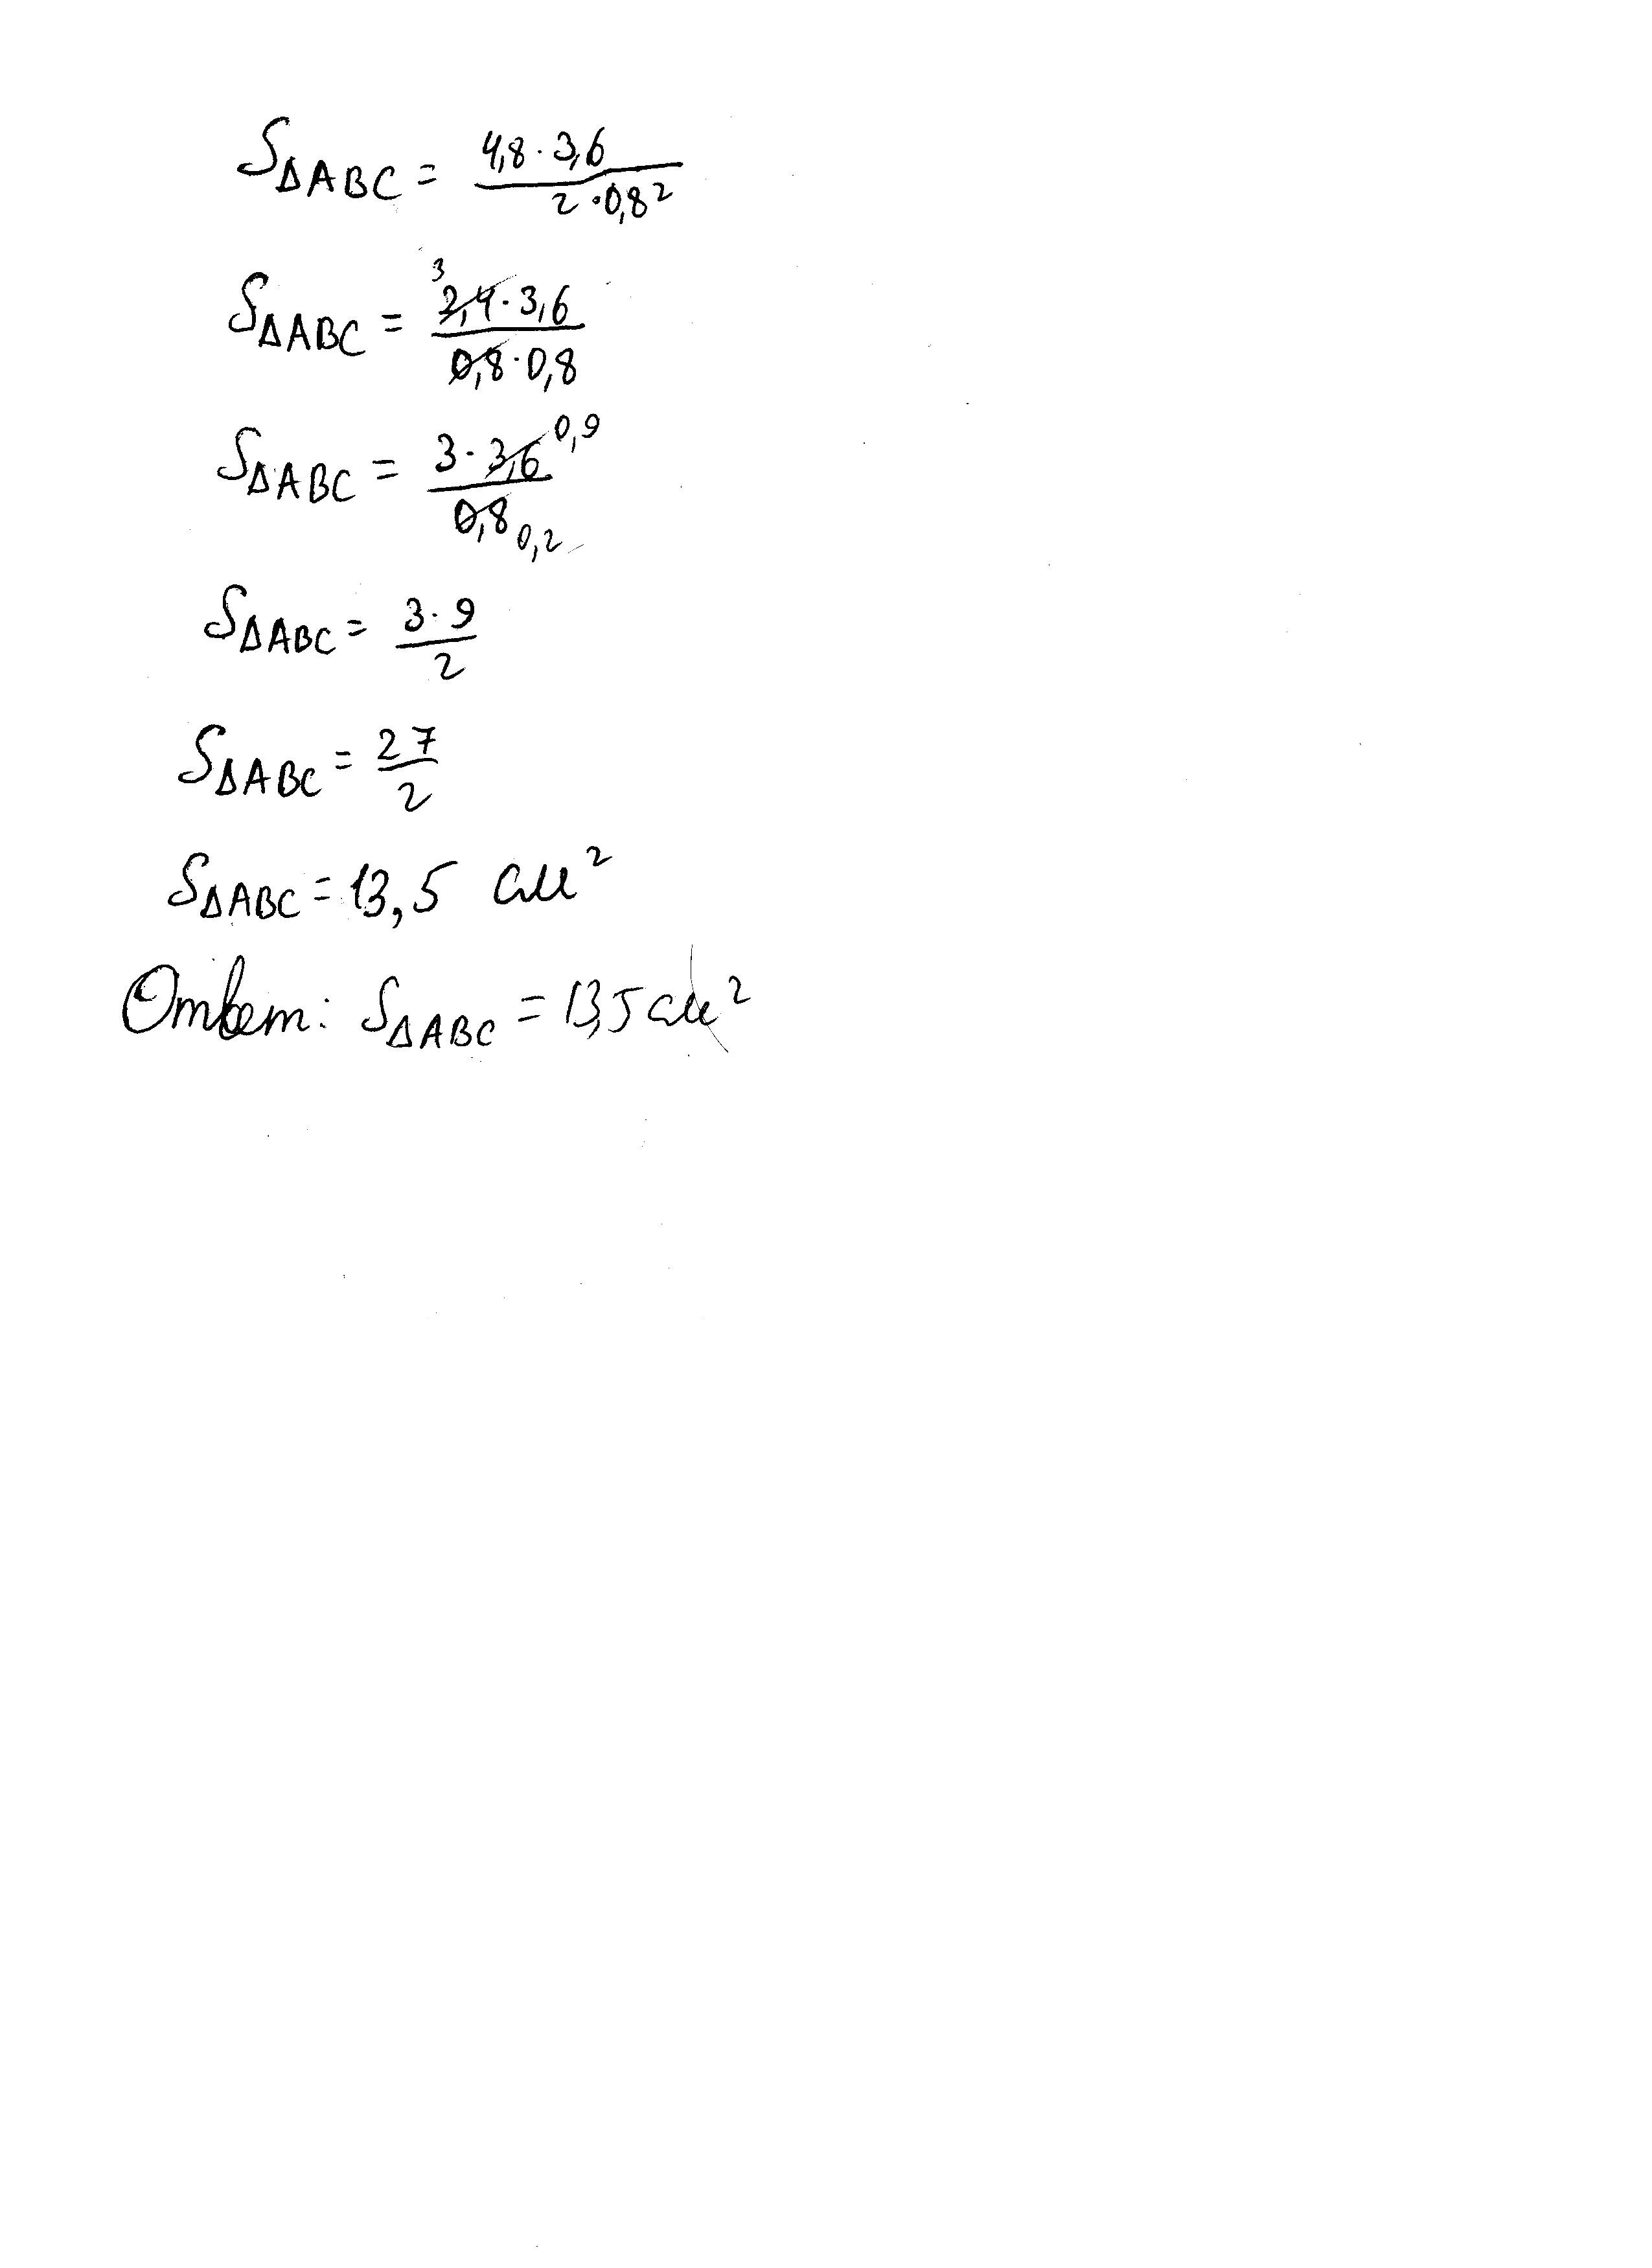 S△ABC = 4,8 · 3,6 / 2 · 0,8²
S△ABC = 3 2,4 · 3,6 / 0,8 · 0,8
S△ABC = 3 · 3,6 0,9 / 0,8 0,2
S△ABC = 3 · 9 / 2
S△ABC = 27 / 2
S△ABC = 13,5 см²
Ответ: S△ABC = 13,5 см²